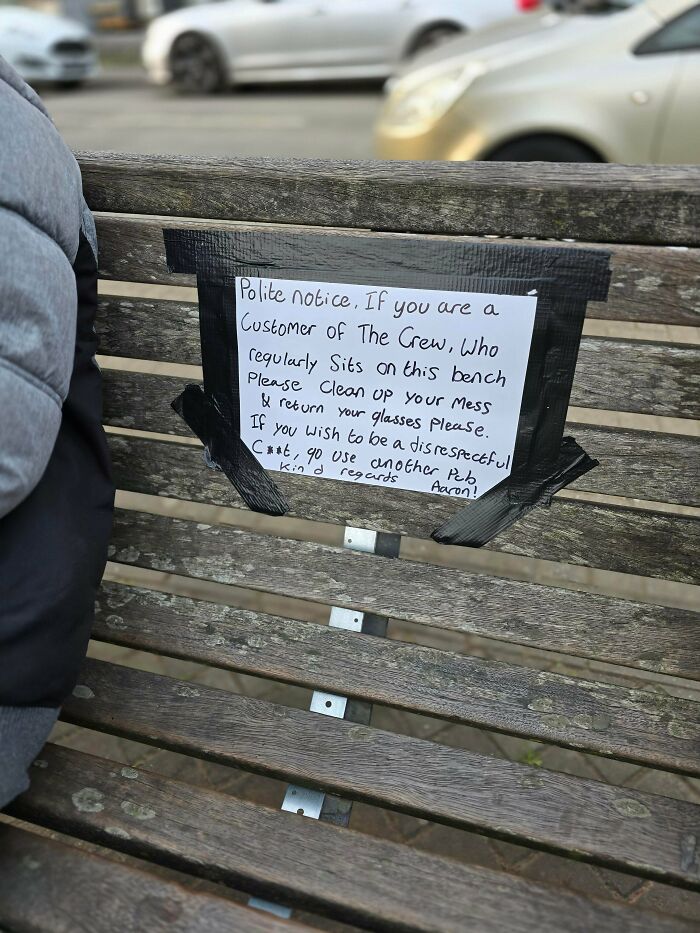 Polite notice. If you are a
Customer of The Crew, Who
regularly Sits on this bench
Please Clean up your Mess
& return your glasses please.
If you wish to be a disrespectful
C**t, go use another Pub
Kin'd regards Aaron!